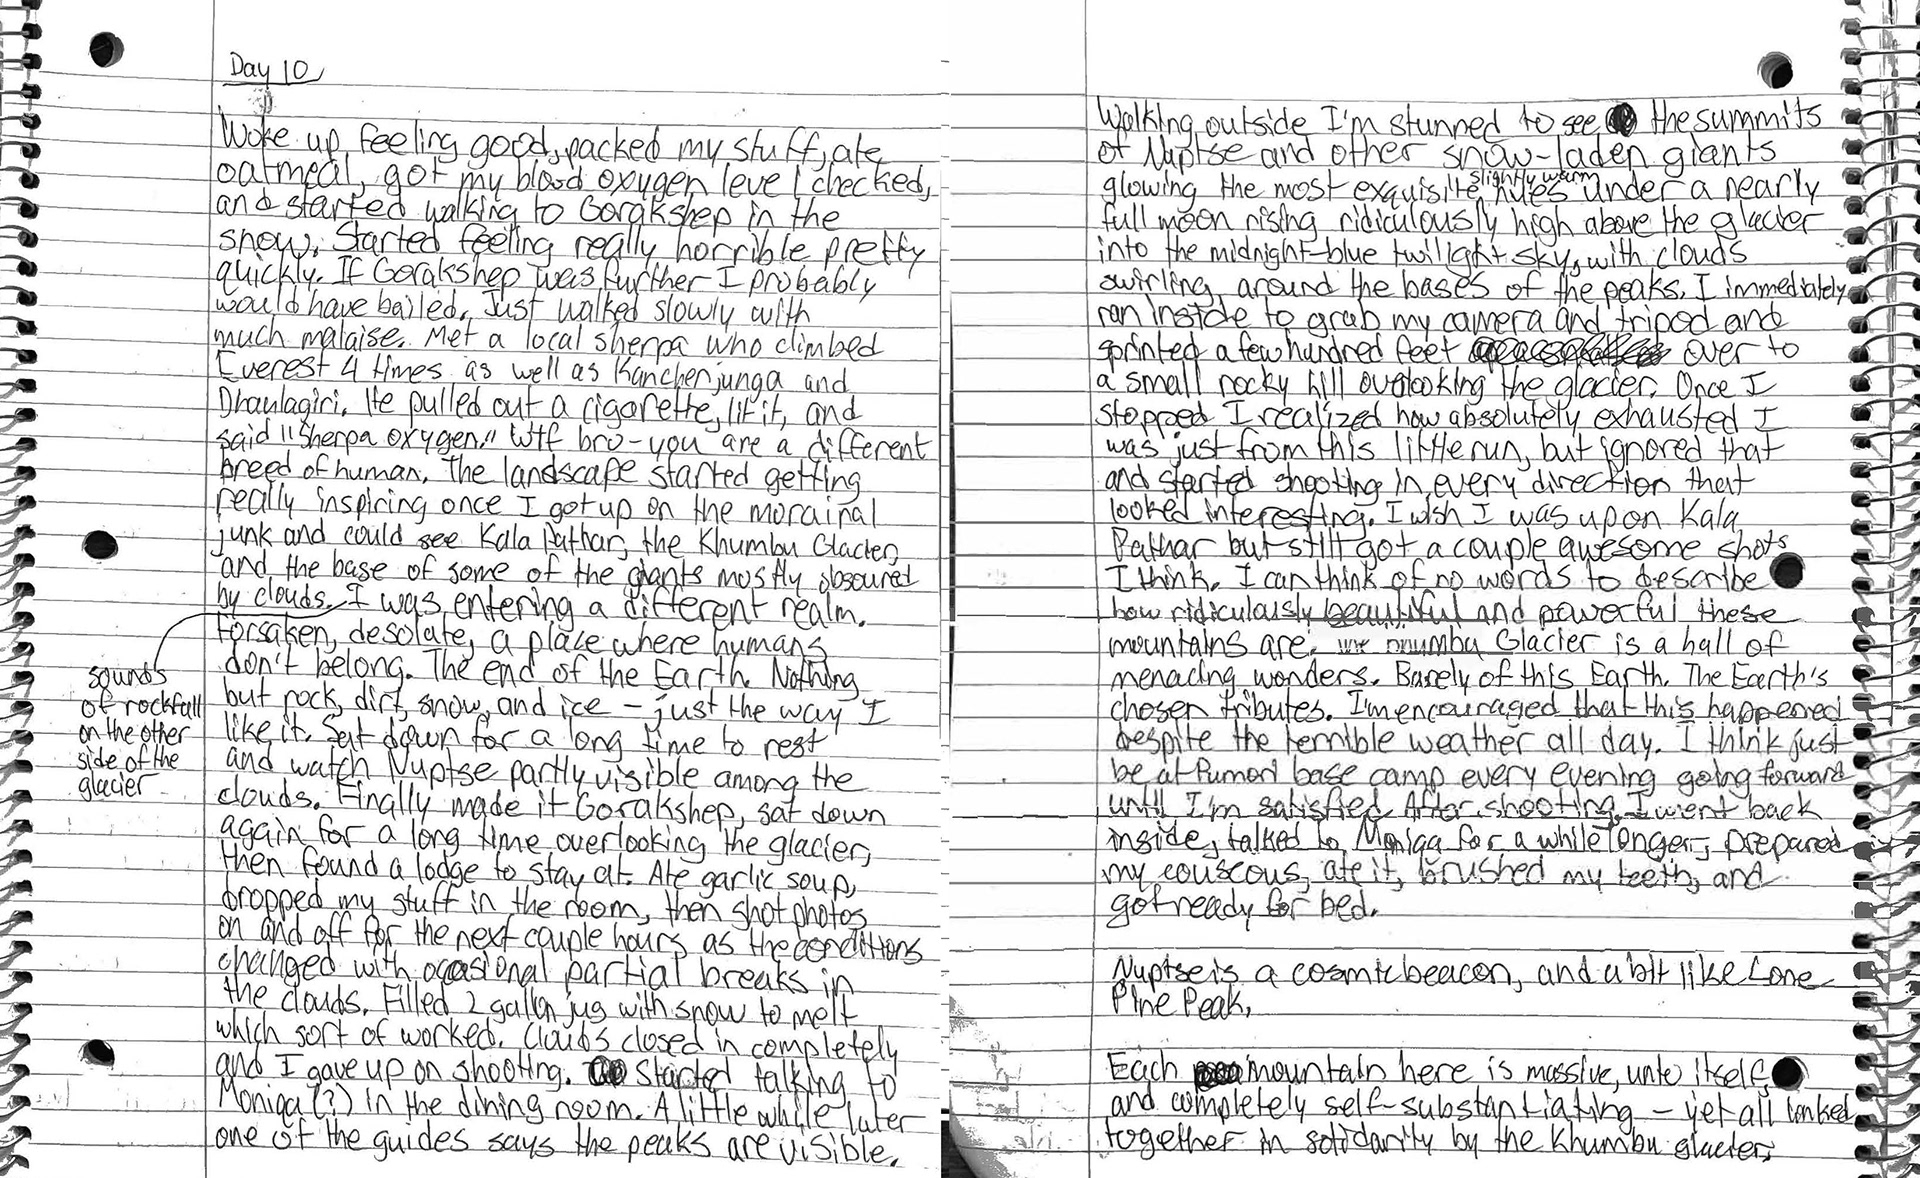 Day 10
Woke up feeling good, packed my stuff, ate
oatmeal, got my blood oxygen level checked,
and started walking to Gorakshep in the
snow. Started feeling really horrible pretty
quickly. If Gorakshep was further I probably
would have bailed. Just walked slowly with
much malaise. Met a local sherpa who climbed
Everest 4 times as well as Kanchenjunga and
Dhaulagiri. He pulled out a cigarette, lit it, and
said "Sherpa oxygen." Wtf bro - you are a different
breed of human. The landscape started getting
really inspiring once I got up on the morainal
junk and could see Kala Pathar, the Khumbu Glacier,
and the base of some of the giants mostly obscured
by clouds. I was entering a different realm.
Forsaken, desolate, a place where humans
don't belong. The end of the Earth. Nothing
but rock, dirt, snow, and ice - just the way I
like it. Sat down for a long time to rest
and watch Nuptse partly visible among the
clouds. Finally made it Gorakshep, sat down
again for a long time overlooking the glacier,
then found a lodge to stay at. Ate garlic soup,
dropped my stuff in the room, then shot photos
on and off for the next couple hours as the conditions
changed with occasional partial breaks in
the clouds. Filled 2 gallon jug with snow to melt
which sort of worked. Clouds closed in completely
and I gave up on shooting. Started talking to
Moniqa(?) in the dining room. A little while later
one of the guides says the peaks are visible.
sounds
of rockfall
on the other
side of the
glacier
Walking outside I'm stunned to see the summits
of Nuptse and other snow-laden giants
slightly warm
glowing the most exquisite hues under a nearly
full moon rising ridiculously high above the glacier
into the midnight-blue twilight sky, with clouds
swirling around the bases of the peaks. I immediately
ran inside to grab my camera and tripod and
sprinted a few hundred feet over to
a small rocky hill overlooking the glacier. Once I
stopped I realized how absolutely exhausted I
was just from this little run, but ignored that
and started shooting in every direction that
looked interesting. I wish I was up on Kala
Pathar but still got a couple awesome shots
I think. I can think of no words to describe
how ridiculously beautiful and powerful these
mountains are. The Khumbu Glacier is a hall of
menacing wonders. Barely of this Earth. The Earth's
chosen tributes. I'm encouraged that this happened
despite the terrible weather all day. I think just
be at Pumori base camp every evening going forward
until I'm satisfied. After shooting, I went back
inside, talked to Moniqa for a while longer, prepared
my couscous, ate it, brushed my teeth, and
got ready for bed.
Nuptse is a cosmic beacon, and a bit like Lone
Pine Peak.
Each mountain here is massive, unto itself,
and completely self-substantiating - yet all linked
together in solidarity by the Khumbu glacier.